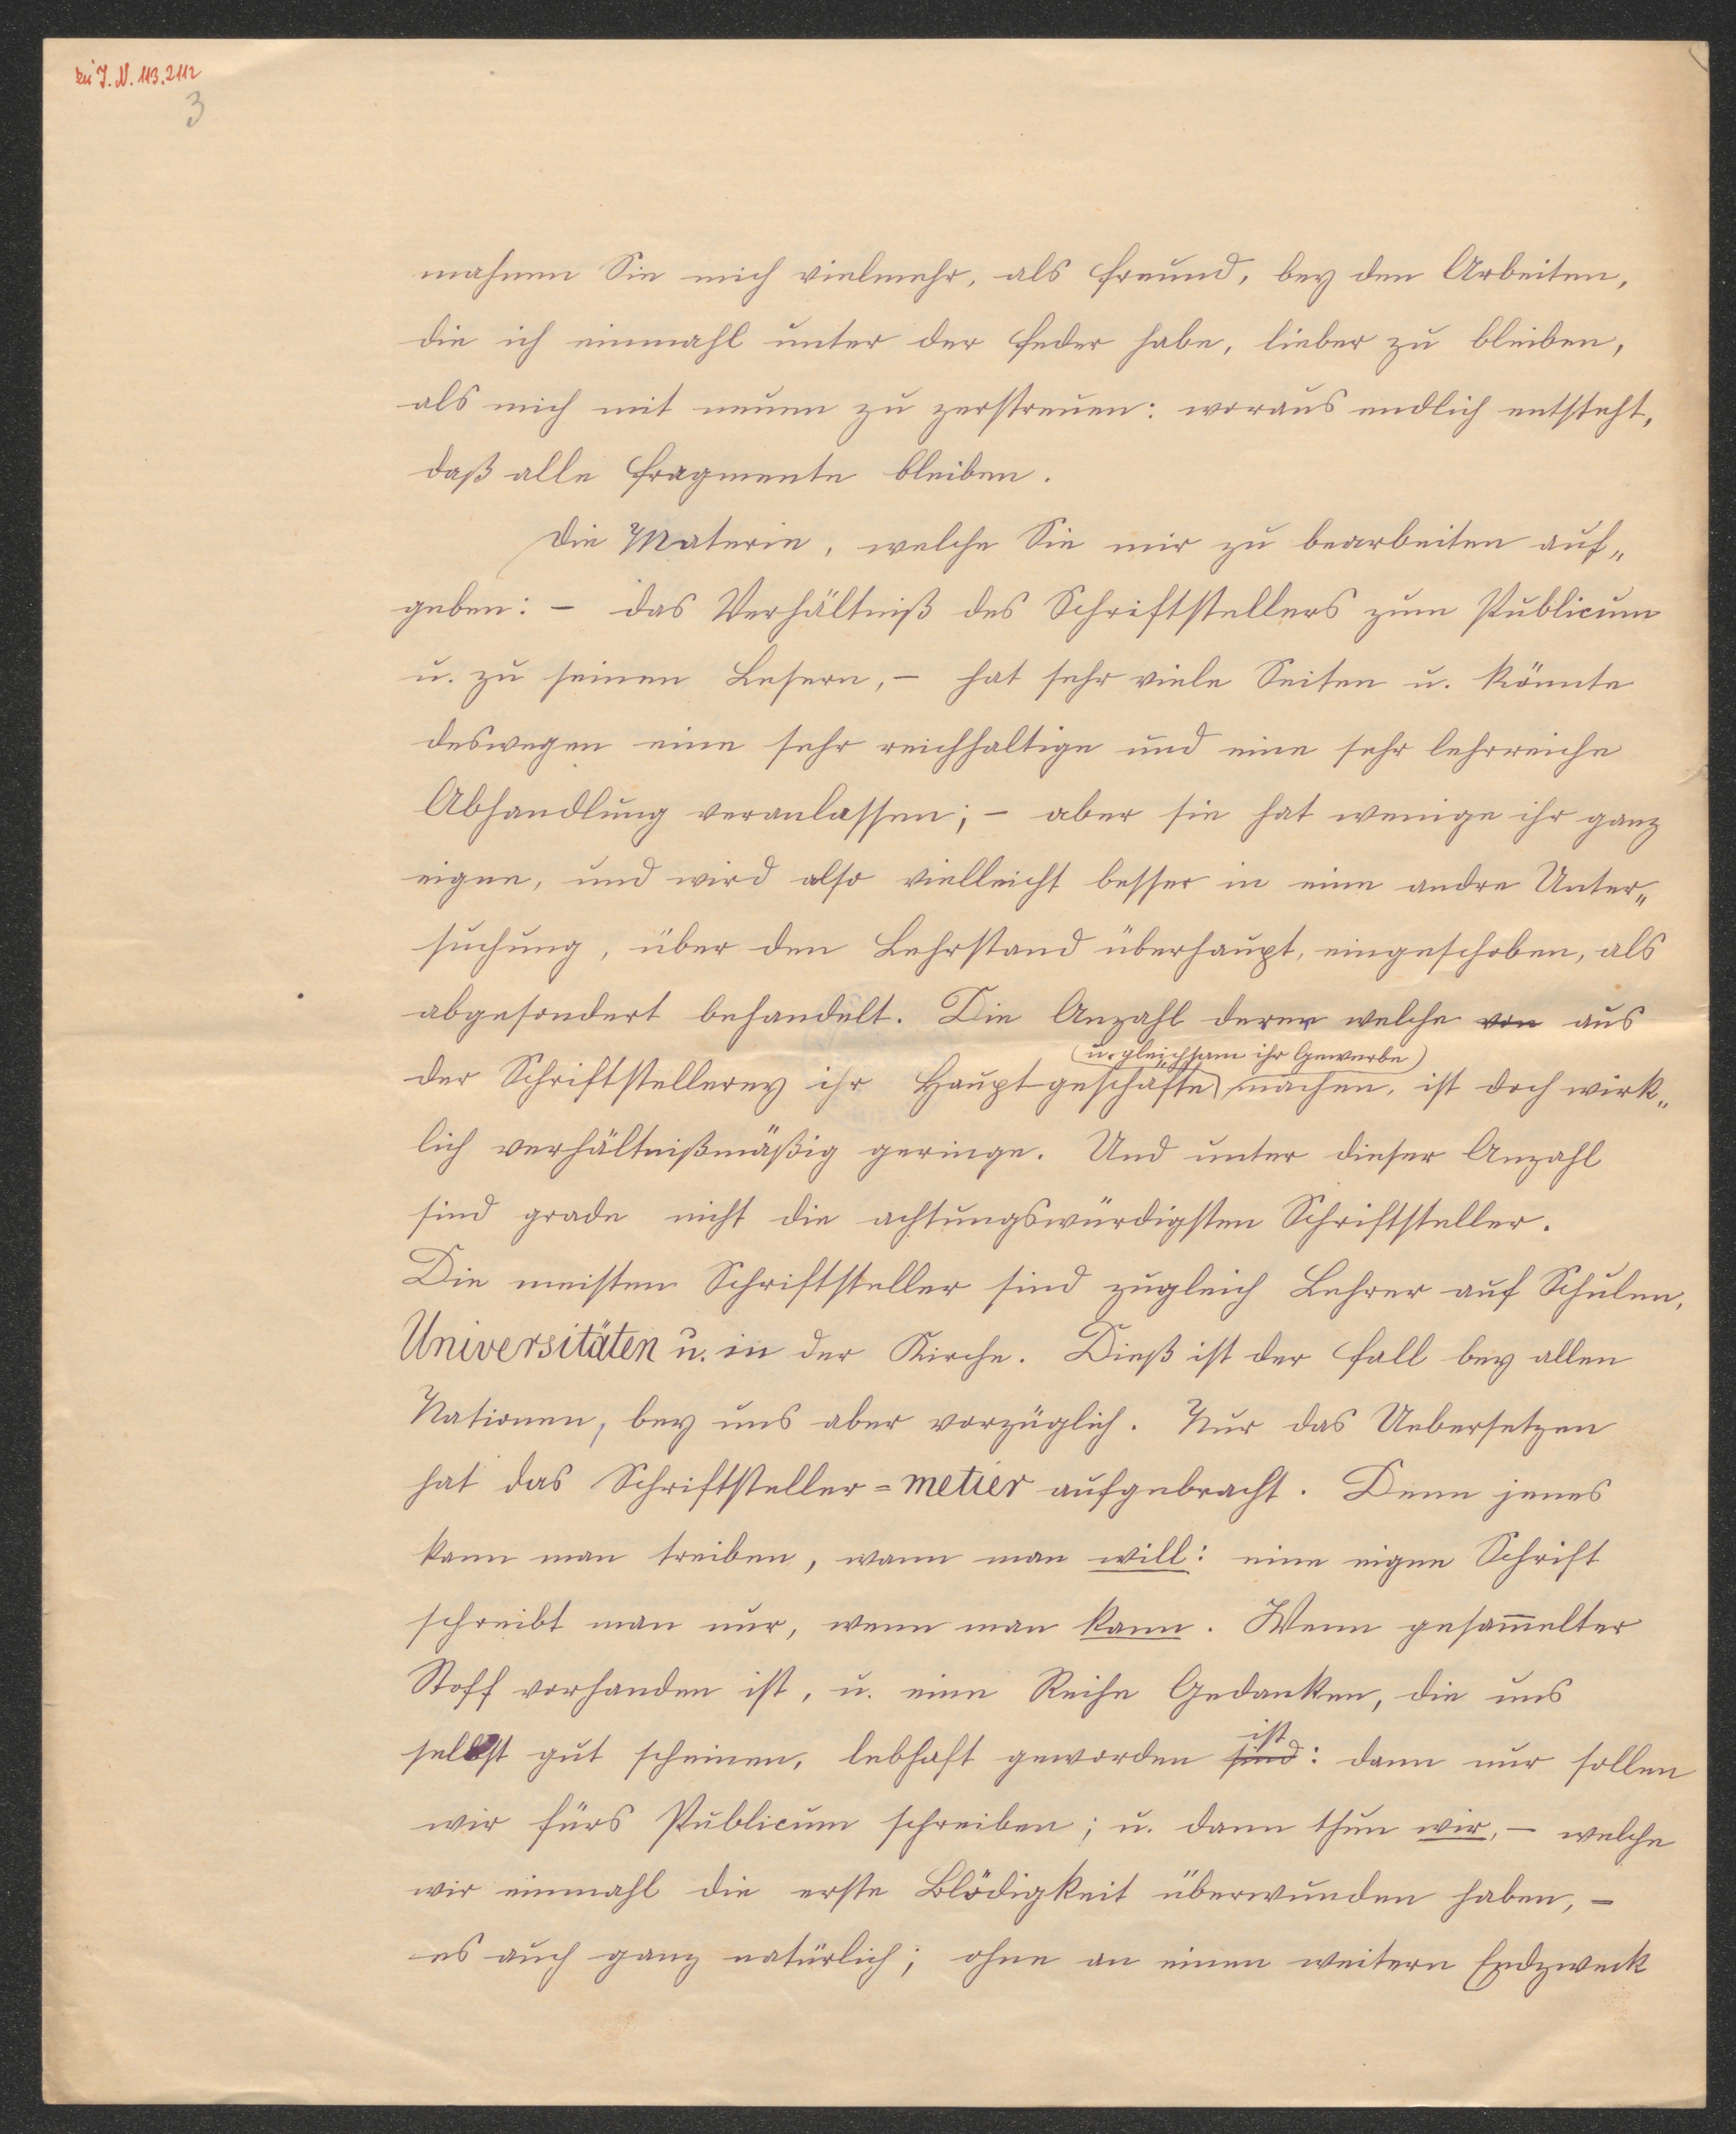 zu J. N. 113.2112
3
mahnen Sie mich vielmehr, als Freund, bey den Arbeiten,
die ich einmahl unter der Feder habe, lieber zu bleiben,
als mich mit neuen zu zerstreuen: woraus endlich entsteht,
daß alle Fragmente bleiben.
Die Materie, welche Sie mir zu bearbeiten auf„
geben: – das Verhältniß des Schriftstellers zum Publicum
u. zu seinen Lesern, – hat sehr viele Seiten u. könnte
deswegen eine sehr reichhaltige und eine sehr lehrreiche
Abhandlung veranlassen; – aber sie hat wenige ihr ganz
eigne, und wird also vielleicht besser in eine andre Unter„
suchung, über den Lehrstand überhaupt, eingeschoben, als
abgesondert behandelt. Die Anzahl derer welche von aus
(u. gleichsam ihr Gewerbe)
der Schriftstellerey ihr Hauptgeschäfte machen, ist doch wirk„
lich verhältnißmäßig geringe. Und unter dieser Anzahl
sind grade nicht die achtungswürdigsten Schriftsteller.
Die meisten Schriftsteller sind zugleich Lehrer auf Schulen,
Universitäten u. in der Kirche. Dieß ist der Fall bey allen
Nationen, bey uns aber vorzüglich. Nur das Uebersetzen
hat das Schriftsteller=metier aufgebracht. Denn jenes
kann man treiben, wann man will: eine eigne Schrift
schreibt man nur, wenn man kann. Wenn gesam̅elter
Stoff vorhanden ist, u. eine Reihe Gedanken, die uns
ist
selbst gut scheinen, lebhaft geworden sind: dann nur sollen
wir fürs Publicum schreiben; u. dann thun wir, – welche
wir einmahl die erste Blödigkeit überwunden haben, –
es auch ganz natürlich; ohne an einen weitern Endzweck